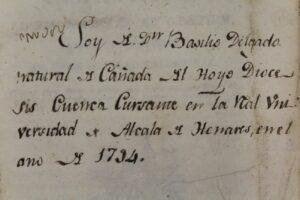 Soy A Dn Basilio Delgado
natural A Cañada Al Hoyo Dioce
sis Cuenca Cursante en la Rial Vni
versidad A Alcala A Henares, en el
ano A 1794.